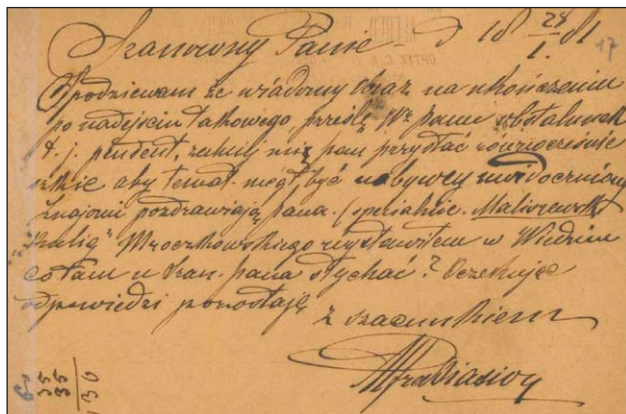 Szanowny Panie - d 18 28/1. 81 17
Spodziewam że wiadomy obraz na ukończeniu
po nadejściu takowego, prześlę Wr. panu obstalunek
t. j. pendent, zechciej mi pan przysłać równocześnie
szkic aby temat mógł być nabywcy uwidoczniony
Znajomi pozdrawiają pana. (specialnie Maliszewski
"Halię" Mroczkowskiego wystawiłem w Wiedniu
co tam u szan. pana słychać? Oczekując
odpowiedzi pozostaję
z szacunkiem
35
35
130